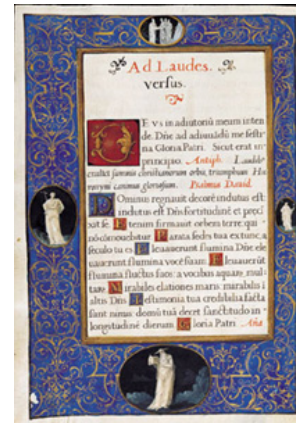 Ad Laudes.
versus.
DE VS in adiutoriū meum inten
de. Dñe ad adiuuādū me festi-
na Gloria Patri. Sicut erat in
principio. Antiph. Laudde
exultāt summis christianorum orbis, triumphum Hie
ronymi canimus gloriosum. Psalmus Dauid.
Dominus regnauit decorē indutus est:
indutus est Dñs fortitudinē et preci
xit se. Etenim firmauit orbem terre qui
nō cōmouebitur Parata sedes tua ex tunc a
seculo tu es Eleuauerunt flumina Dñe ele
uauerunt flumina vocē suam. Eleuauerūt
flumina fluctus suos: a vocibus aquarū, mul
tarū Mirabiles elationes maris mirabilis ī
altis Dñs Testimonia tua credibilia facta
sunt nimis domū tuā decet sanctitudo in
longitudinē dierum. Gloria Patri Aña